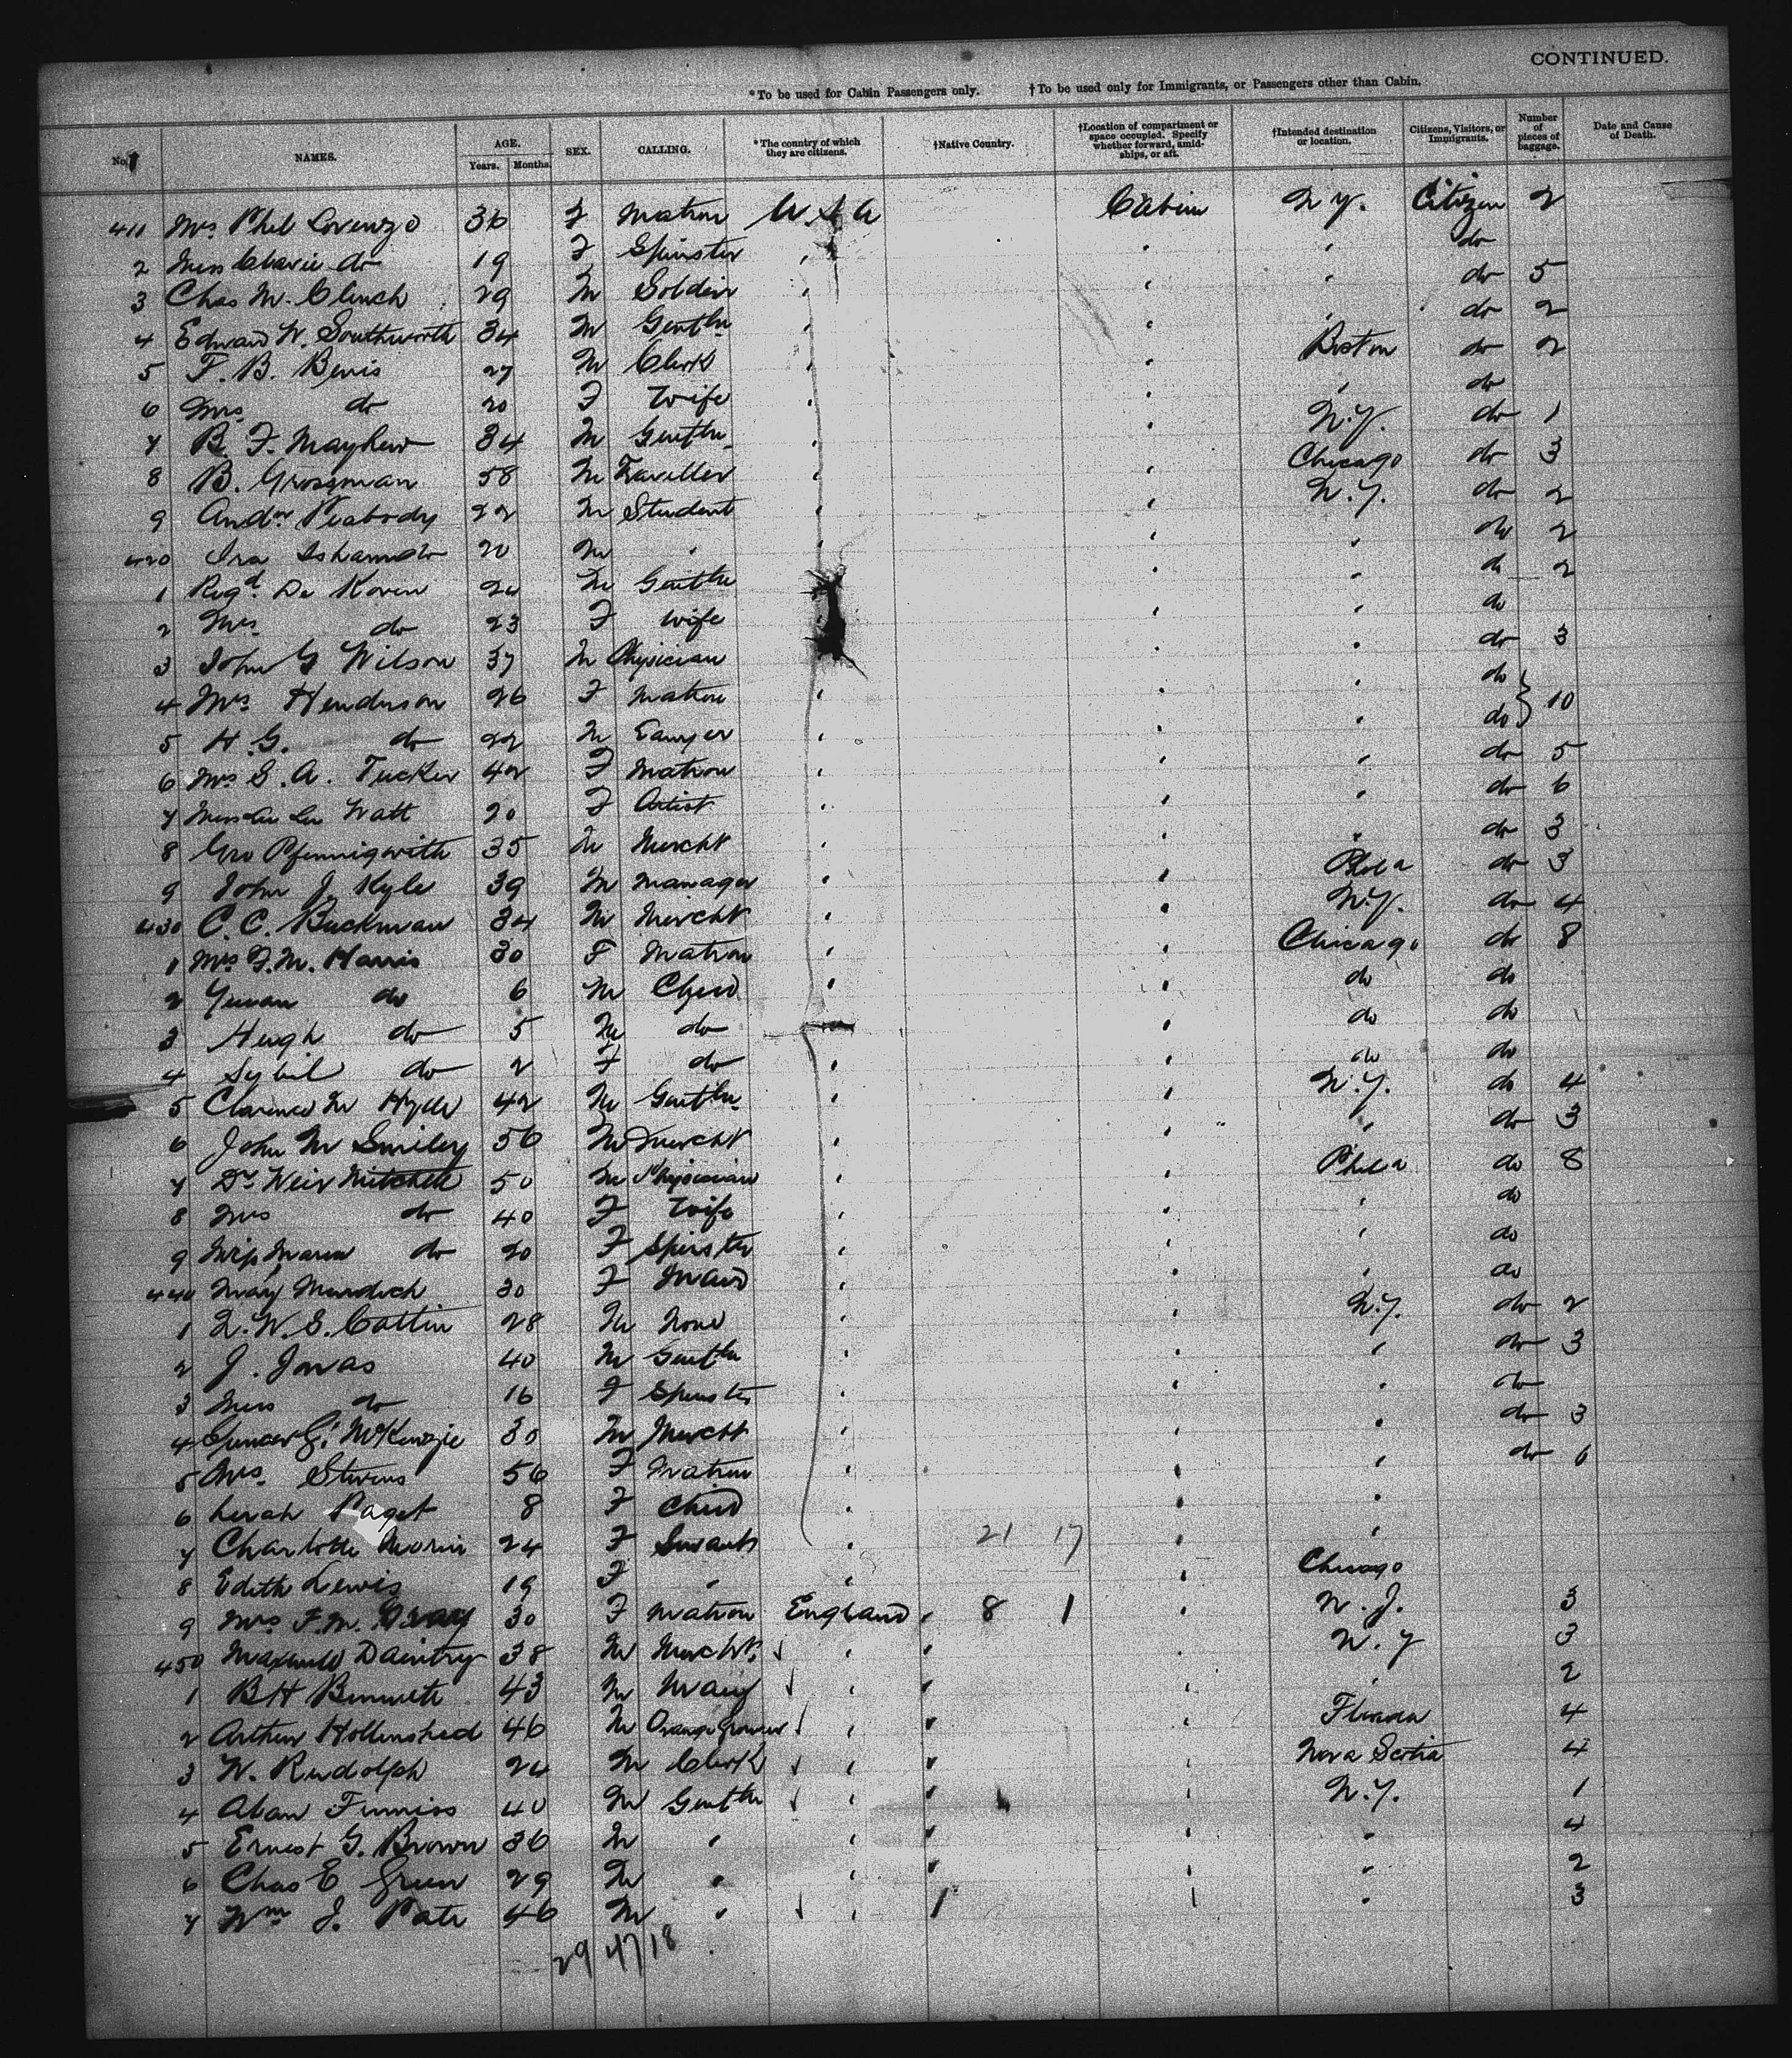 CONTINUED.
*To be used for Cabin Passengers only. †To be used only for Immigrants, or Passengers other than Cabin.
No. NAMES. AGE. Years. Months. SEX. CALLING. *The country of which they are citizens. †Native Country. †Location of compartment or space occupied. Specify whether forward, amidships, or aft. †Intended destination or location. Citizens, Visitors, or Immigrants. Number of pieces of baggage. Date and Cause of Death.
411 Mrs Phil Lorenzo 36 F Matron U S A Cabin N Y. Citizen 2
2 Miss do 19 F Spinster " " " do
3 Chas M. Clinch 29 M Soldier " " " do 5
4 Edward W. Southworth 34 M Gentln " " " do 2
5 F. B. Bemis 27 M Clerk " " Boston do 2
6 Mrs do 20 F Wife " " " do
7 B. F. Mayhew 34 M Gentln " " N.Y. do 1
8 B. Grossman 58 M Traveller " " Chicago do 3
9 Andw Peabody 22 M Student " " N.Y. do 2
420 Ira 20 M " " " " do 2
1 Regd De Koven 24 M Gentln " " do 2
2 Mrs do 23 F Wife " " do
3 John G Wilson 37 M Physician " " do 3
4 Mrs Henderson 26 F Matron " " " do } 10
5 H. G. do 22 M Lawyer " " " do
6 Mrs S. A. Tucker 42 F Matron " " " do 5
7 Miss Watt 20 F Artist " " " do 6
8 Geo Pfennigwith 35 M Mercht " " " do 3
9 John J. Kyle 39 M Manager " " Phila do 3
430 C. C. Buckman 34 M Mercht " " N.Y. do 4
1 Mrs F. M. Harris 30 F Matron " " Chicago do 8
2 do 6 M Child " do do
3 Hugh do 5 M do " do do
4 Sybil do 2 F do " " do do
5 Clarence M Hyde 42 M Gentln " " N.Y. do 4
6 John M Smiley 56 M Mercht " " " do 3
7 Dr Weir Mitchell 50 M Physician " " Phila do 8
8 Mrs do 40 F Wife " " " do
9 Miss Maria do 20 F Spinster " " " do
440 Mary Murdoch 30 F Maid " " " do
1 L. W. S. Cattin 28 M None " " N.Y. do 2
2 J. Jonas 40 M Gentln " " " do 3
3 Miss do 16 F Spinster " " " do
4 Spencer G. McKenzie 30 M Mercht " " do 3
5 Mrs Stevens 56 F Matron " " " do 6
6 Paget 8 F Child " " "
7 Charlotte Morin 24 F Servant " 21 17 " "
8 Edith Lewis 19 F " " " Chicago
9 Mrs F. M. Gray 30 F Matron England " 8 1 " N. J. 3
450 Maxwell Daintry 38 M Mercht " " " N. Y 3
1 B H Bennett 43 M " " " " 2
2 Arthur Hollinshed 46 M Orange grower " " " Florida 4
3 W. Rudolph 24 M Clerk " " " Nova Scotia 4
4 Alan Furniss 40 M Gentln " " " N. Y. 1
5 Ernest G. Brown 36 M " " " " " 4
6 Chas E Green 29 M " " " " " 2
7 Wm J. Pate 46 M " " " " " 3
29 47 18